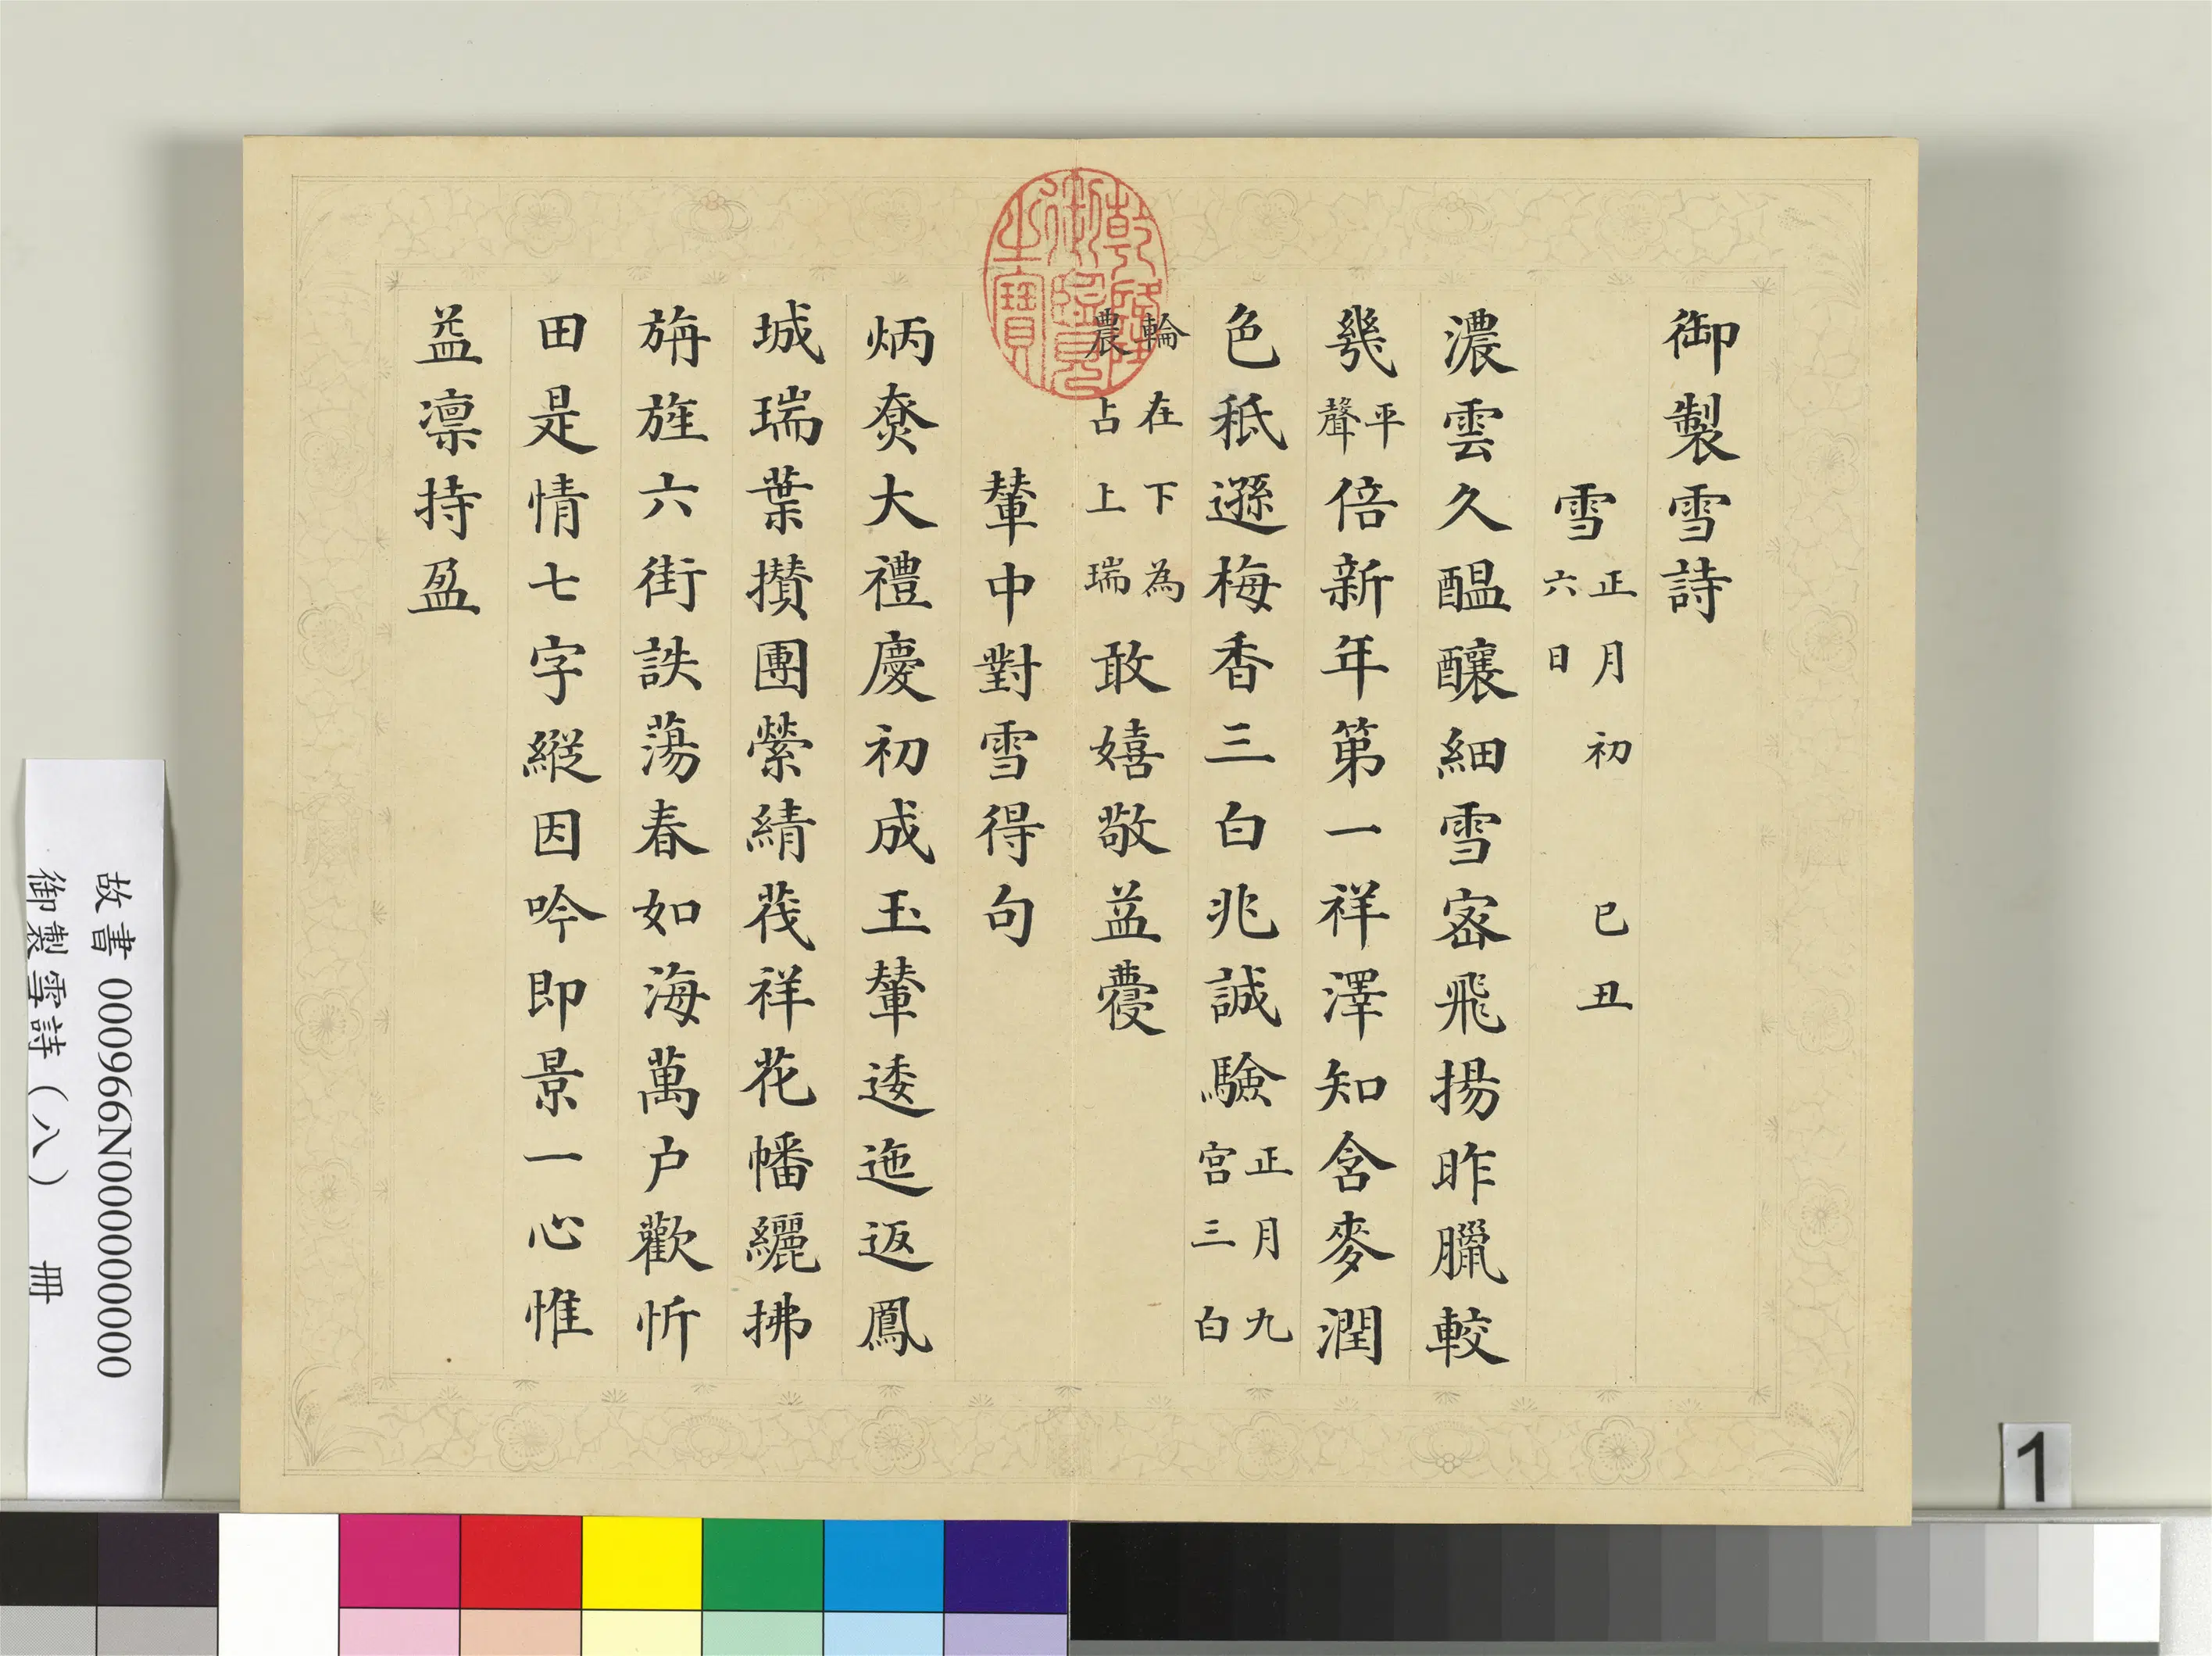 御製雪詩
雪 正月初六日 己丑
濃雲久醖釀細雪宻飛揚昨臘較
㡬平聲倍新年第一祥澤知含麥潤
色秪遜梅香三白兆誠驗正月九宫三白
輪在下為農占上瑞敢嬉敬益蘉
輦中對雪得句
炳尞大禮慶初成玉輦逶迤返鳳
城瑞葉攢團縈綪茷祥花幡纚拂
旃旌六街詄蕩春如海萬户歡忻
田是情七字縱因吟即景一心惟
益凛持盈
乾隆御覽之寶
故書 000966N000000000
御製雪詩（八） 冊
1